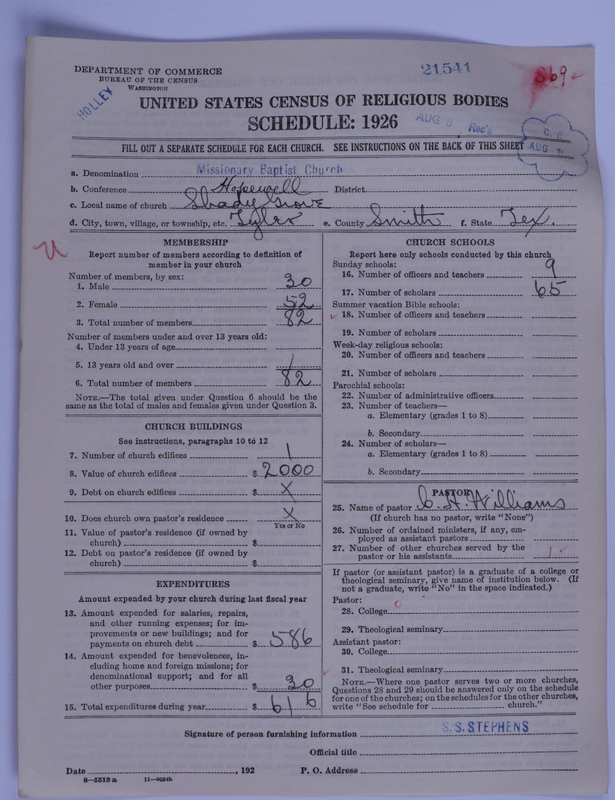 DEPARTMENT OF COMMERCE
BUREAU OF THE CENSUS
WASHINGTON
HOLLEY
21541
869
UNITED STATES CENSUS OF RELIGIOUS BODIES
SCHEDULE: 1926
AUG 9 Rec'd
O. C.
AUG
FILL OUT A SEPARATE SCHEDULE FOR EACH CHURCH. SEE INSTRUCTIONS ON THE BACK OF THIS SHEET
a. Denomination Missionary Baptist Church
b. Conference Hopewell District
c. Local name of church Shady Grove
d. City, town, village, or township, etc. Tyler e. County Smith f. State Tex.
MEMBERSHIP
Report number of members according to definition of
member in your church
Number of members, by sex:
1. Male 30
2. Female 52
3. Total number of members 82
Number of members under and over 13 years old:
4. Under 13 years of age
5. 13 years old and over 1
6. Total number of members 82
NOTE.—The total given under Question 6 should be the
same as the total of males and females given under Question 3.
CHURCH BUILDINGS
See instructions, paragraphs 10 to 12
7. Number of church edifices 1
8. Value of church edifices $ 2000
9. Debt on church edifices $ X
10. Does church own pastor's residence X
Yes or No
11. Value of pastor's residence (if owned by
church) $
12. Debt on pastor's residence (if owned by
church) $
EXPENDITURES
Amount expended by your church during last fiscal year
13. Amount expended for salaries, repairs,
and other running expenses; for im-
provements or new buildings; and for
payments on church debt $ 586
14. Amount expended for benevolences, in-
cluding home and foreign missions; for
denominational support; and for all
other purposes $ 30
15. Total expenditures during year $ 616
CHURCH SCHOOLS
Report here only schools conducted by this church
Sunday schools:
16. Number of officers and teachers 9
17. Number of scholars 65
Summer vacation Bible schools:
18. Number of officers and teachers
19. Number of scholars
Week-day religious schools:
20. Number of officers and teachers
21. Number of scholars
Parochial schools:
22. Number of administrative officers
23. Number of teachers—
a. Elementary (grades 1 to 8)
b. Secondary
24. Number of scholars—
a. Elementary (grades 1 to 8)
b. Secondary
PASTOR
25. Name of pastor C. H. Williams
(If church has no pastor, write "None")
26. Number of ordained ministers, if any, em-
ployed as assistant pastors
27. Number of other churches served by the
pastor or his assistants 1
If pastor (or assistant pastor) is a graduate of a college or
theological seminary, give name of institution below. (If
not a graduate, write "No" in the space indicated.)
Pastor:
28. College
29. Theological seminary
Assistant pastor:
30. College
31. Theological seminary
NOTE.—Where one pastor serves two or more churches,
Questions 28 and 29 should be answered only on the schedule
for one of the churches; on the schedules for the other churches,
write "See schedule for church."
Signature of person furnishing information S. S. STEPHENS
Official title
Date , 192 P. O. Address
8—5518a 11—9054b